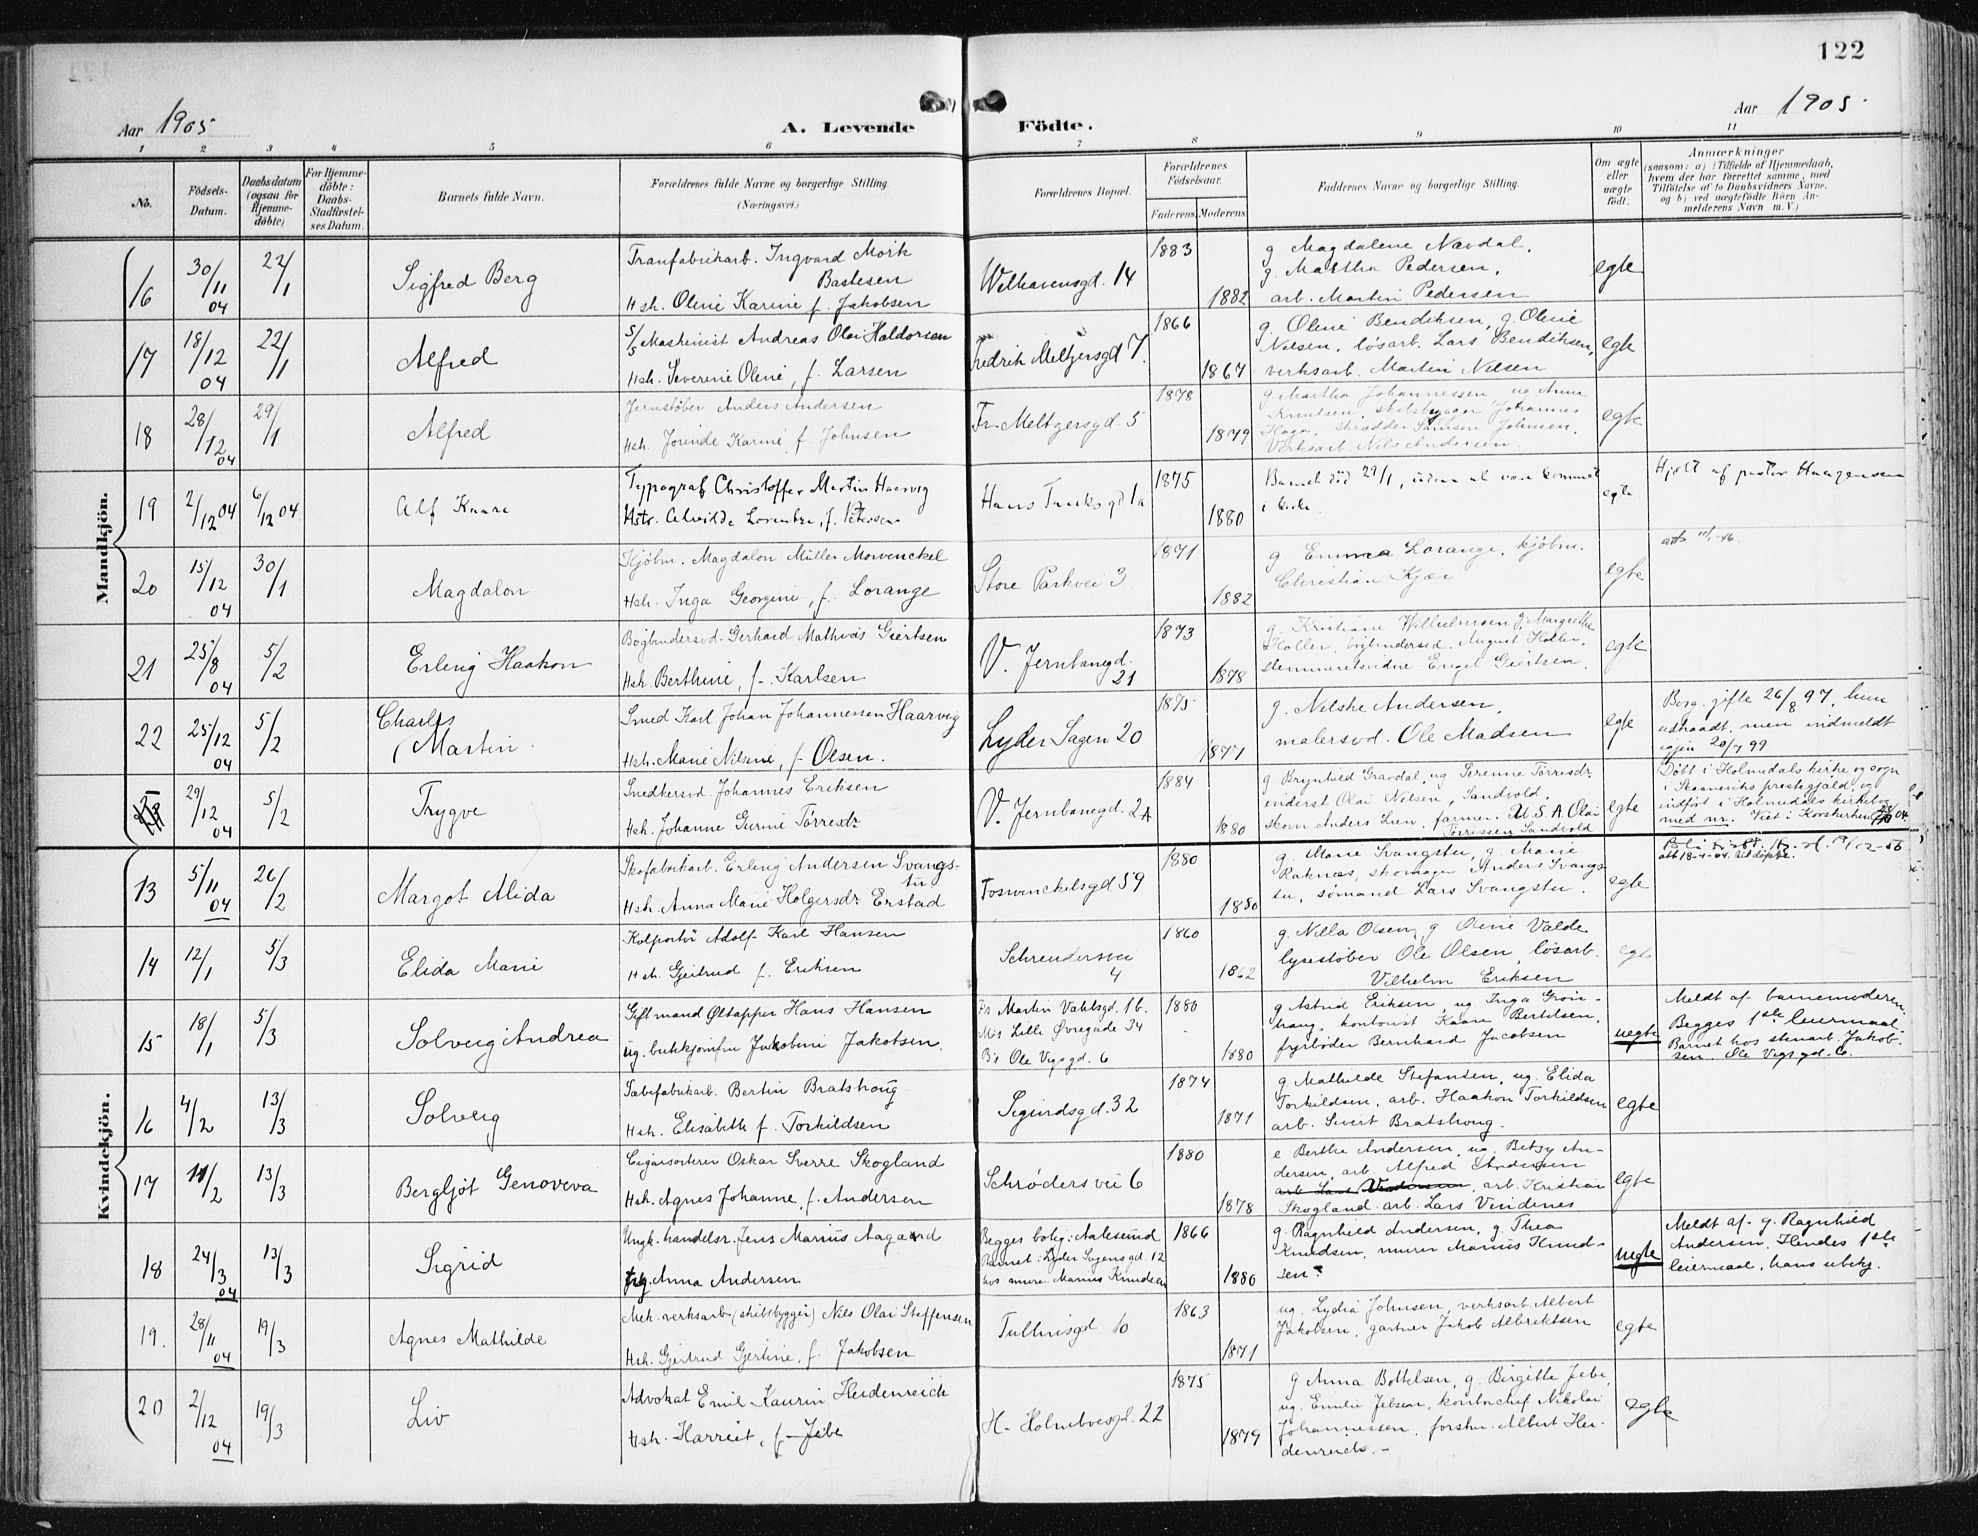 122
Aar 1905
A. Levende Födte.
Aar 1905.
1 2 3 4 5 6 7 8 9 10 11
No.
Födsels-Datum.
Daabsdatum (ogsaa for Hjemme-döbte)
For Hjemme-döbte: Daabs-Stadfæstel-ses Datum.
Barnets fulde Navn.
Forældrenes fulde Navne og borgerlige Stilling. (Næringsvei.)
Forældrenes Bopæl.
Forældrenes Födselsaar.
Faderens. Moderens.
Faddernes Navne og borgerlige Stilling.
Om ægte eller uægte födt.
Anmærkninger
(saasom: a) i Tilfælde af Hjemmedaab, hvem der har forrettet samme, med Tilföielse af to Daabsvidners Navne, og b) ved uægtefödte Börn An-melderens Navn m. V.)
Mandkjön.
16 30/11 04 22/1 Sigfred Berg
Tranfabrikarb. Ingvard Mörk Bastesen
Hsh. Oline Karine f. Jakobsen
Welhavensgd. 14 1883 1882
g. Magdalene Nævdal,
g. Martha Pedersen,
arb. Martin Pedersen
egte
17 18/12 04 22/1 Alfred
Maskinist Andreas Olai Haldorsen
Hsh. Severine Oline, f. Larsen
Fredrik Meltzersgd 7. 1866 1867
g. Oline Bendiksen, g. Oline
Nilsen, lösarb. Lars Bendiksen,
verksarb. Martin Nilsen
egte
18 28/12 04 29/1 Alfred
Jernstöber Anders Andersen
Hsh. Jorinde Karine f. Johnsen
Fr. Meltzersgd. 5 1878 1879
g. Martha Johannessen, ug Anna
Knutsen, skibsbygger Johannes
Haga, skrædder Johnsen,
Verksarb. Nils Andersen.
egte
19 2/12 04 6/12 04 Alf Kaare
Typograf Christoffer Martin Haarvig
Hstr. Alvilde f. Petersen
Hans Tanksgd 1a 1875 1880
Barnet död 29/1, uden at være kommet
i kirke.
egte
Hjdbt af pastor Haagensen
20 15/12 04 30/1 Magdalon
Kjöbm. Magdalon Müller Mowinckel
Hsh. Inga Georgine, f. Lorange
Store Parkvei 3 1871 1882
g. Emma Lorange, kjöbm.
Christian Kjær
egte
21 25/8 04 5/2 Erling Haakon
Bogbindersvd. Gerhard Mathias Giertsen
Hsh. Berthine, f. Karlsen
V. Jernbanegd. 21 1873 1878
g. Kristiane Wilhelmsen g. Margrethe
Holler, bogbindersvd. August Holler,
stemmeretsvidne Engel Giertsen.
egte
22 25/12 04 5/2 Charles Martin.
Smed Karl Johan Johannessen Haarvig
Hsh. Marie Nilsine, f. Olsen.
Lyder Sagen 20 1875 1877
g. Nilske Andersen,
malersvd. Ole Madsen
egte
Borg. gifte 26/8 97, hun
udtraadt, men indmeldt
igjen 20/7 99
29/12 04 5/2 Trygve
Smedkersvd. Johannes Eriksen
Hsh. Johanne Gurine Törresdr
V. Jernbanegd. 2A 1884 1880
g. Brynhild Gravdal, ug Serenne Törresdr.
inderst Olai Nilsen, Sandvold,
skom. Anders Lien, farmer i U.S.A. Olai
Törrissen Sandvold
egte
Döbt i Holmedals kirke og sogn
i Skaaneviks prestegjæld, og
indfört i Holmedals kirkebog
med nr. Viet i Korskirken
Kvindekjön.
13 5/11 04 26/2 Margot Alida
Skofabrikarb. Erling Andersen Svangs-tu
Hsh. Anna Marie Holgersdr Erstad
Foswinckelsgd 59 1880 1880
g. Marie Svangstu, g. Marie
Raknes, skomager Anders Svangs-
tu, sömand Lars Svangstu.
egte
14 12/1 5/3 Elida Marie
Kolportör Adolf Karl Hansen
Hsh. Gjertrud f. Eriksen
Schreudersvei 4 1860 1862
g. Nilla Olsen, g Oline Valde
lysestöber Ole Olsen, lösarb.
Vilhelm Eriksen
egte
15 18/1 5/3 Solveig Andrea
Gift mand Øltapper Hans Hansen
ug. butikjomfru Jakobine Jakobsen.
Fs Martin Vahlsgd. 1b.
Ms Lille Øvregade 34
Bs Ole Vigsgd. 6
1880 1880
g Astrid Eriksen, ug. Inga Gron-
haug, kontorist Kaare Bertelsen,
fyrböder Bernhard Jacobsen
uegte
Meldt af barnemoderen.
Begges 1ste leiermaal.
Barnet hos stenarb. Jakob-
sen. Ole Vigsgd. 6.
16 4/2 13/3 Solveig
Sæbefabrikarb. Bertin Bratshaug
Hsh. Elisabeth f. Torkildsen
Sigurdsgd. 32 1874 1871
g. Mathilde Stefansen, ug. Elida
Torkildsen, arb. Haakon Torkildsen
arb. Sivert Bratshaug.
egte
17 11/2 13/3 Bergljot Genoveva
Cigarsorterer Oskar Sverre Skogland
Hsh. Agnes Johanne, f. Andersen
Schrödersvei 6 1880 1878
e Berthe Andersen, ug. Betsy An-
dersen, arb. Alfred Andersen
arb. Kristian
Skogland arb. Lars Vindenes
egte
18 24/3 04 13/3 Sigrid
Ungk. handelsr. Jens Marius Aagaard
Pig. Anna Andersen
Begges bolig: Aalesund
Barnet: Lyder Sagensgd. 12
hos murer Marius Knudsen
1866 1880
g. Ragnhild Andersen, g. Thea
Knudsen, murer Marius Knud-
sen.
uegte
Meldt af g. Ragnhild
Andersen. Hendes 1ste
leiermaal, hans ubekj.
19. 28/11 04 19/3 Agnes Mathilde
Mek. verksarb. (skibsbygger) Nils Olai Steffensen
Hsh. Gjertrud Gjertine, f. Jakobsen
Tullinsgd 10 1863 1871
ug. Lydia Johnsen, verksarb. Albert
Jakobsen, gartner Jakob Albriktsen
egte
20 2/12 04 19/3 Liv
Advokat Emil Kaurin Heidenreich
Hsh. Harriet, f. Jebe
H. Holmboesgd. 22 1875 1879
g Anna Bottelsen, g. Birgitte Jebe,
ug. Emilie Jebsen, kontorchef Nikolai
Johannessen, forstm. Albert Hei-
denreich.
egte